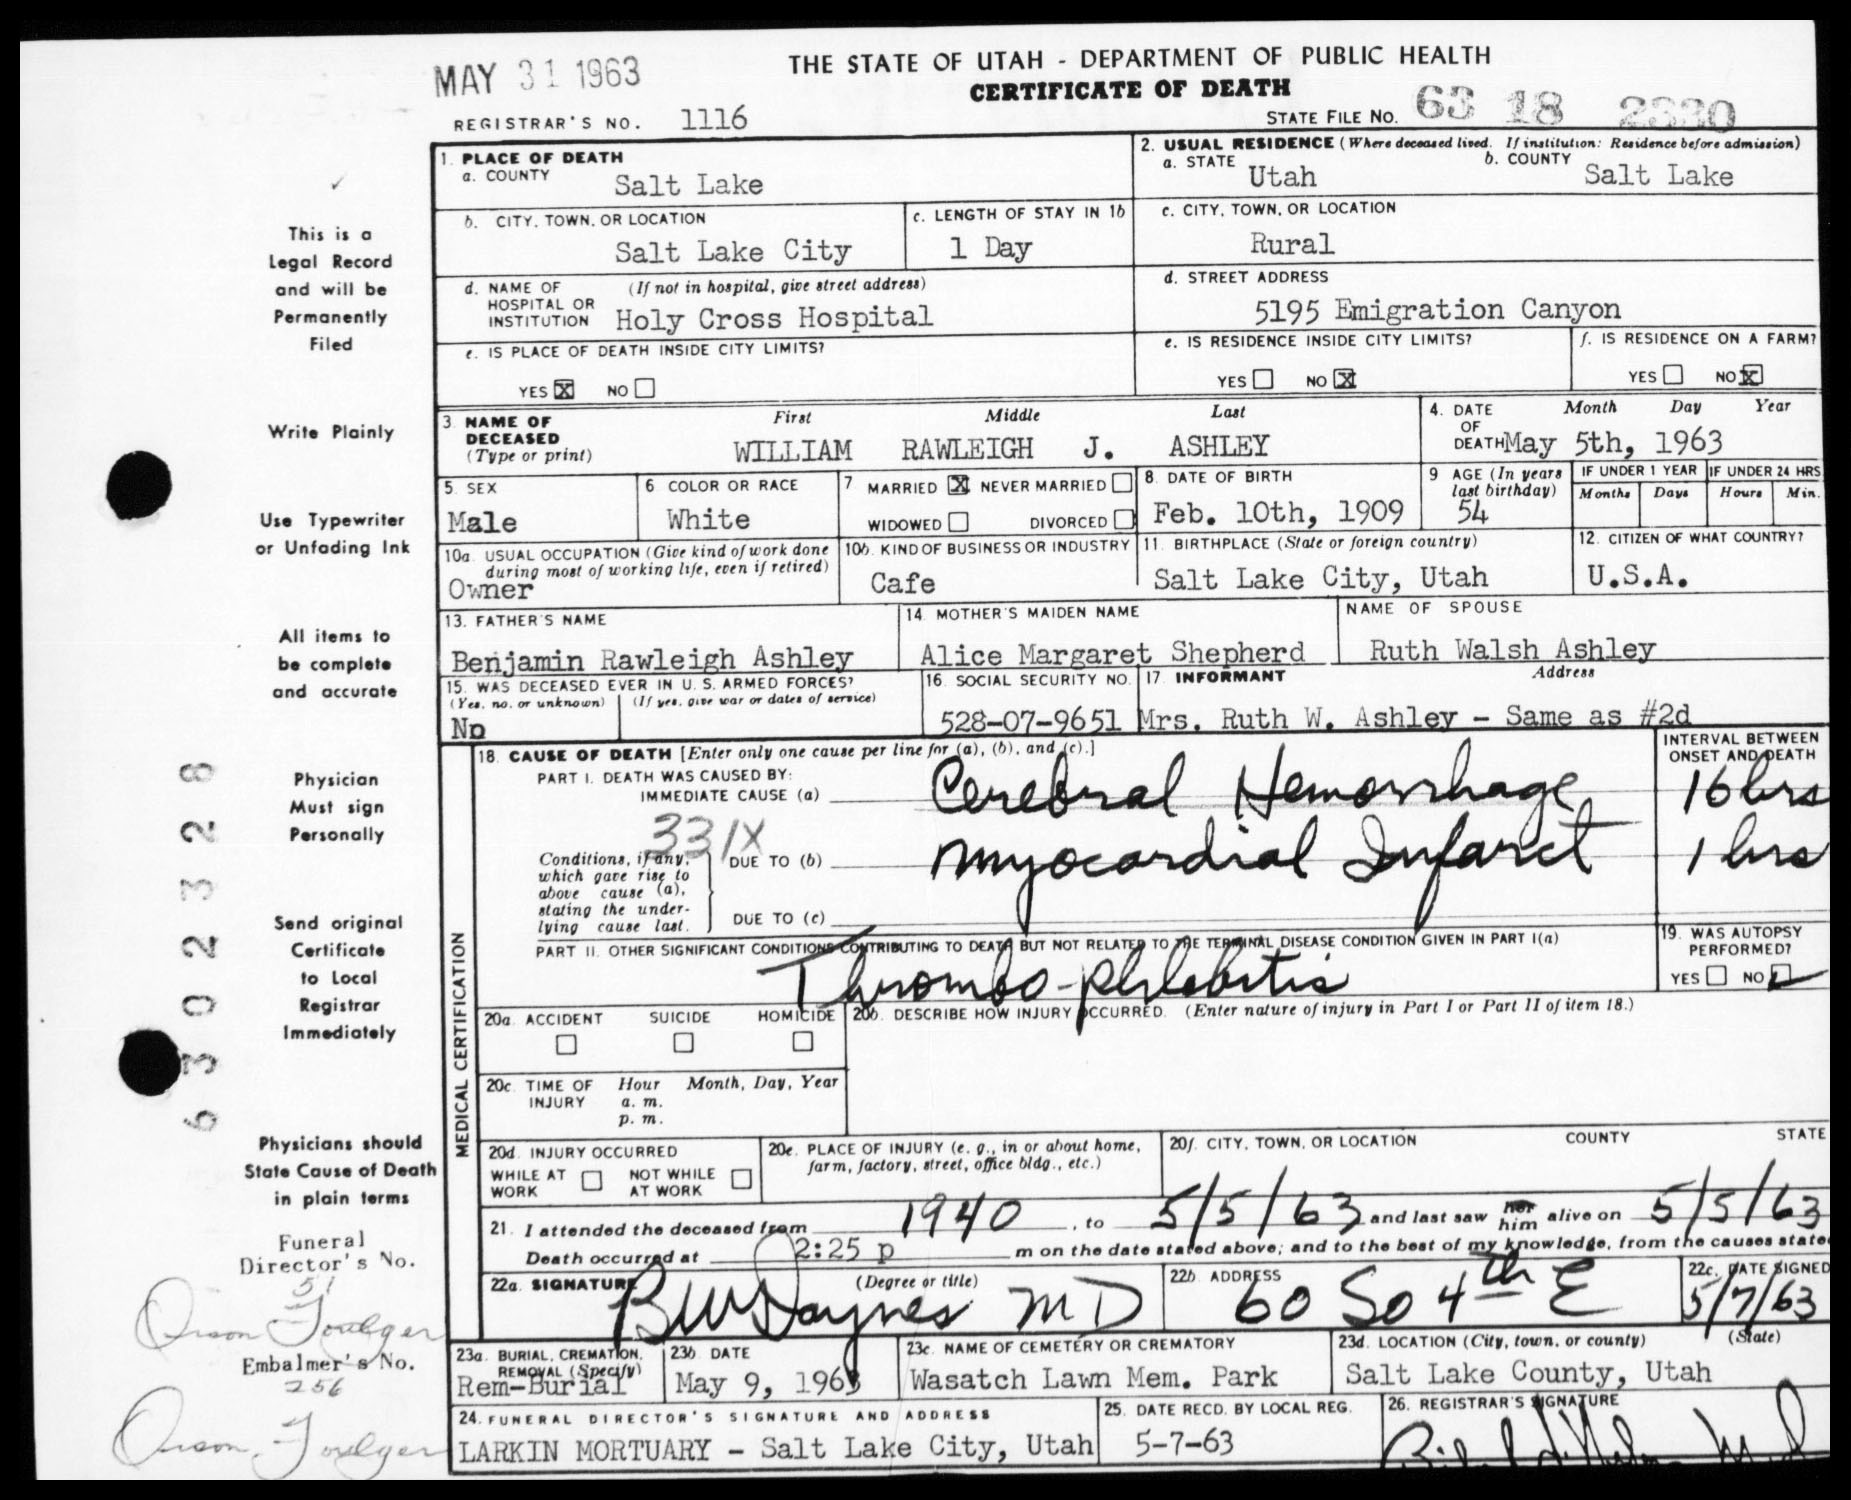 MAY 31 1963
THE STATE OF UTAH - DEPARTMENT OF PUBLIC HEALTH
CERTIFICATE OF DEATH
REGISTRAR'S NO. 1116
STATE FILE NO. 63 18 2330
1. PLACE OF DEATH
a. COUNTY Salt Lake
2. USUAL RESIDENCE (Where deceased lived. If institution: Residence before admission)
a. STATE Utah b. COUNTY Salt Lake
b. CITY, TOWN, OR LOCATION Salt Lake City
c. LENGTH OF STAY IN 1b 1 Day
c. CITY, TOWN, OR LOCATION Rural
d. NAME OF HOSPITAL OR INSTITUTION (If not in hospital, give street address) Holy Cross Hospital
d. STREET ADDRESS 5195 Emigration Canyon
e. IS PLACE OF DEATH INSIDE CITY LIMITS?
YES X NO
e. IS RESIDENCE INSIDE CITY LIMITS?
YES NO X
f. IS RESIDENCE ON A FARM?
YES NO X
3. NAME OF DECEASED (Type or print)
First Middle Last
WILLIAM RAWLEIGH J. ASHLEY
4. DATE OF DEATH Month Day Year
May 5th, 1963
5. SEX Male
6. COLOR OR RACE White
7. MARRIED X NEVER MARRIED
WIDOWED DIVORCED
8. DATE OF BIRTH Feb. 10th, 1909
9 AGE (In years last birthday) 54
IF UNDER 1 YEAR Months Days
IF UNDER 24 HRS Hours Min.
10a. USUAL OCCUPATION (Give kind of work done during most of working life, even if retired)
Owner
10b. KIND OF BUSINESS OR INDUSTRY
Cafe
11. BIRTHPLACE (State or foreign country)
Salt Lake City, Utah
12. CITIZEN OF WHAT COUNTRY?
U.S.A.
13. FATHER'S NAME
Benjamin Rawleigh Ashley
14. MOTHER'S MAIDEN NAME
Alice Margaret Shepherd
NAME OF SPOUSE
Ruth Walsh Ashley
15. WAS DECEASED EVER IN U. S. ARMED FORCES?
(Yes, no, or unknown) (If yes, give war or dates of service)
No
16. SOCIAL SECURITY NO.
528-07-9651
17. INFORMANT Address
Mrs. Ruth W. Ashley - Same as #2d
MEDICAL CERTIFICATION
18. CAUSE OF DEATH [Enter only one cause per line for (a), (b), and (c).]
INTERVAL BETWEEN ONSET AND DEATH
PART I. DEATH WAS CAUSED BY:
IMMEDIATE CAUSE (a) Cerebral Hemorrhage 16 hrs
331X
Conditions, if any, which gave rise to above cause (a), stating the underlying cause last.
DUE TO (b) Myocardial Infarct 1 hrs
DUE TO (c)
PART II. OTHER SIGNIFICANT CONDITIONS CONTRIBUTING TO DEATH BUT NOT RELATED TO THE TERMINAL DISEASE CONDITION GIVEN IN PART I(a)
Thrombo-phlebitis
19. WAS AUTOPSY PERFORMED?
YES NO
20a. ACCIDENT SUICIDE HOMICIDE
20b. DESCRIBE HOW INJURY OCCURRED. (Enter nature of injury in Part I or Part II of item 18.)
20c. TIME OF INJURY Hour Month, Day, Year
a. m.
p. m.
20d. INJURY OCCURRED
WHILE AT WORK NOT WHILE AT WORK
20e. PLACE OF INJURY (e. g., in or about home, farm, factory, street, office bldg., etc.)
20f. CITY, TOWN, OR LOCATION COUNTY STATE
21. I attended the deceased from 1940, to 5/5/63 and last saw her him alive on 5/5/63
Death occurred at 2:25 p m on the date stated above; and to the best of my knowledge, from the causes state
22a. SIGNATURE (Degree or title)
B W Daynes MD
22b. ADDRESS
60 So 4th E
22c. DATE SIGNED
5/7/63
23a. BURIAL, CREMATION, REMOVAL (Specify)
Rem-Burial
23b. DATE
May 9, 1963
23c. NAME OF CEMETERY OR CREMATORY
Wasatch Lawn Mem. Park
23d. LOCATION (City, town, or county) (State)
Salt Lake County, Utah
24. FUNERAL DIRECTOR'S SIGNATURE AND ADDRESS
LARKIN MORTUARY - Salt Lake City, Utah
25. DATE RECD. BY LOCAL REG.
5-7-63
26. REGISTRAR'S SIGNATURE
This is a
Legal Record
and will be
Permanently
Filed
Write Plainly
Use Typewriter
or Unfading Ink
All items to
be complete
and accurate
Physician
Must sign
Personally
Send original
Certificate
to Local
Registrar
Immediately
Physicians should
State Cause of Death
in plain terms
Funeral
Director's No.
51
Orson Foulger
Embalmer's No.
256
Orson Foulger
6 3 0 2 3 2 8